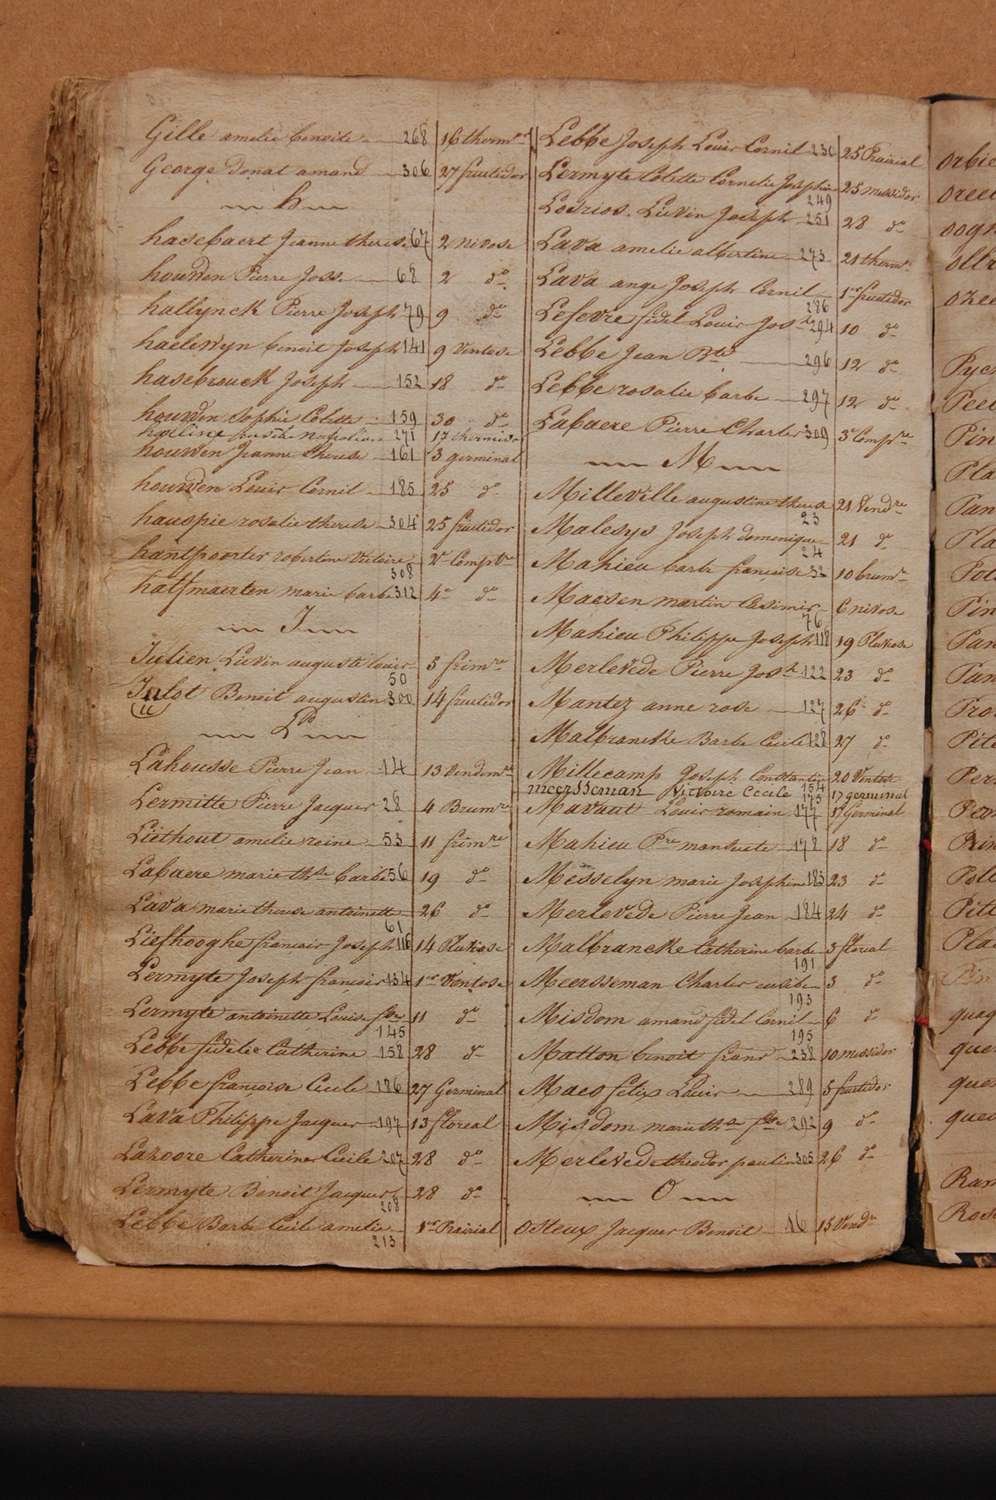 Gille amelie benoite 268 16 therm.or
George Donat amand 306 27 fructidor
h
hasebaert Jeanne therese 67 2 nivose
houwen Pierre Joss. 68 2 do
hallynck Pierre Joseph 79 9 do
haelewyn benoit Joseph 141 9 Ventose
hasebrouck Joseph 152 18 do
houwen Sophie Colette 159 30 do
271 17 thermidor
houwen Jeanne therese 161 3 germinal
houwen Louis Cornil 185 25 do
hauspie rosalie therese 304 25 fructidor
hantpoorter robertine Victoire 308 2e Compre
halfmaerten marie barbe 312 4e do
J
Julien Lievin auguste louis 50 5 frim.re
Julot Benoit augustin 300 14 fructidor
L
Lahousse Pierre Jean 14 13 Vendem.re
Lermitte Pierre Jacques 28 4 Brum.re
Liethout amelie reine 53 11 frim.re
Labaere marie th.se barbe 56 19 do
Lava marie therese antoinette 61 26 do
Liefhooghe francois Joseph 116 14 Pluviose
Lermyte Joseph francois 134 1er Ventose
Lermyte antoinette Louise f.se 145 11 do
Lebbe fidelie Catherine 158 28 do
Lebbe francoise Cecile 186 27 Germinal
Lava Philippe Jacques 197 13 floreal
Lanoore Catherine Cecile 207 28 do
Lermyte Benoit Jacques 208 28 do
Lebbe Barbe Cecile amelie 213 1er Prairial
Lebbe Joseph Louis Cornil 236 25 Prairial
Lermyte Colette Cornelie Josephine 249 25 messidor
Losrios Lievin Joseph 251 28 do
Lava amelie albertine 273 21 therm.r
Lava ange Joseph Cornil 286 1er fructidor
Lefevre fidel Louis Jos.h 294 10 do
Lebbe Jean B.te 296 12 do
Lebbe rosalie barbe 297 12 do
Labaere Pierre Charles 309 3e Comp.re
M
Milleville augustine therese 23 21 Vend.re
Malesys Joseph dominique 24 21 do
Mahieu barbe francoise 32 10 brum.r
Maesen martin Casimir 76 6 nivose
Mahieu Philippe Joseph 118 19 Pluviose
Merlevede Pierre Jos.h 122 23 do
Mantez anne rose 127 26 do
Malbrancke Barbe Cecile 128 27 do
Millecamp Joseph Constantin 154 20 Ventose
meersseman Victoire Cecile 175 17 germinal
Mavaut Louis romain 177 17 Germinal
Mahieu P.re mansuete 178 18 do
Messelyn marie Josephine 183 23 do
Merlevede Pierre Jean 184 24 do
Malbrancke Catherine barbe 191 3 floreal
Meersseman Charles eusebe 193 3 do
Misdom amand fidel Cornil 195 6 do
Matton benoit franc. 238 10 messidor
Maes felix Louis 289 5 fructidor
Misdom marie th.se f.se 292 9 do
Merlevede theodor paulin 305 26 do
O
Osteux Jacques Benoit 16 15 Vend.r
orbie
oog
Pin
Pla
Pan
Pla
Pot
Pin
Pan
Pan
Tro
Pit
Per
Pit
Pla
queg
que
que
que
Ram
Rose